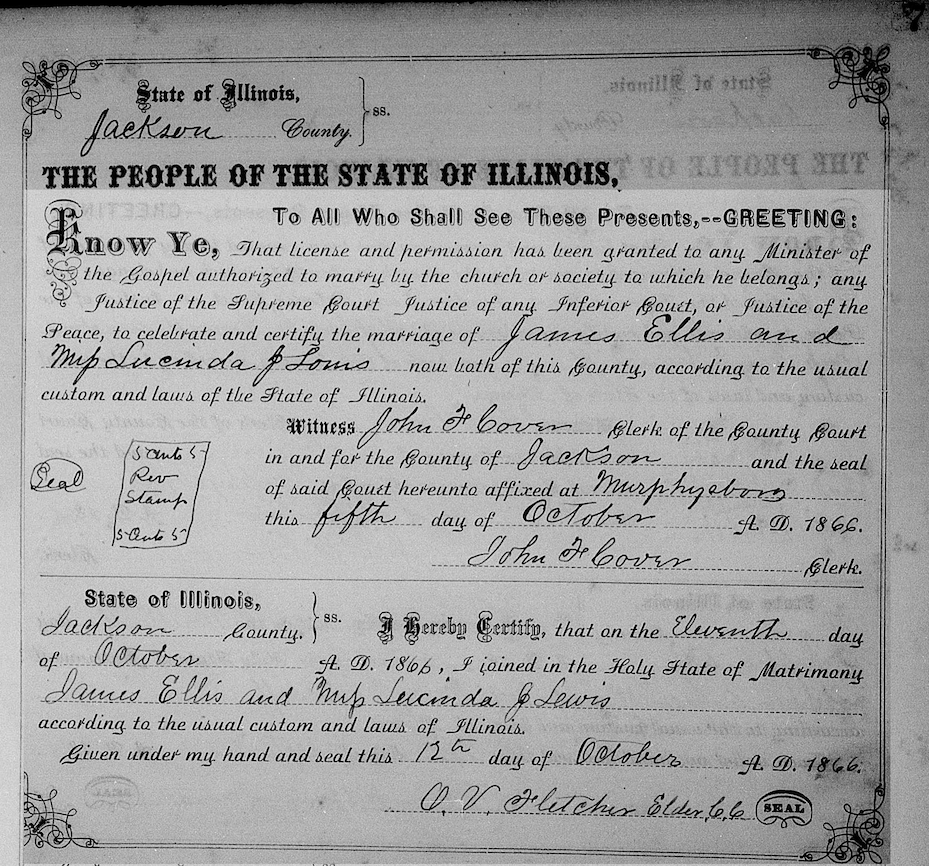 7
State of Illinois,
Jackson County. } ss.
THE PEOPLE OF THE STATE OF ILLINOIS,
To All Who Shall See These Presents,--GREETING:
Know Ye, That license and permission has been granted to any Minister of
the Gospel authorized to marry by the church or society to which he belongs; any
Justice of the Supreme Court Justice of any Inferior Court, or Justice of the
Peace, to celebrate and certify the marriage of James Ellis and
Miss Lucinda J Lewis now both of this County, according to the usual
custom and laws of the State of Illinois.
Witness John F Cover Clerk of the County Court
in and for the County of Jackson and the seal
of said Court hereunto affixed at Murphysboro
this fifth day of October A. D. 1866.
John F Cover Clerk.
Seal
5 Cents 5
Rev
Stamp
5 Cents 5
State of Illinois,
Jackson County. } ss. I Hereby Certify, that on the Eleventh day
of October A. D. 1866, I joined in the Holy State of Matrimony
James Ellis and Miss Lucinda J Lewis
according to the usual custom and laws of Illinois.
Given under my hand and seal this 12th day of October A. D. 1866.
O. V. Fletcher Elder, C. C. SEAL